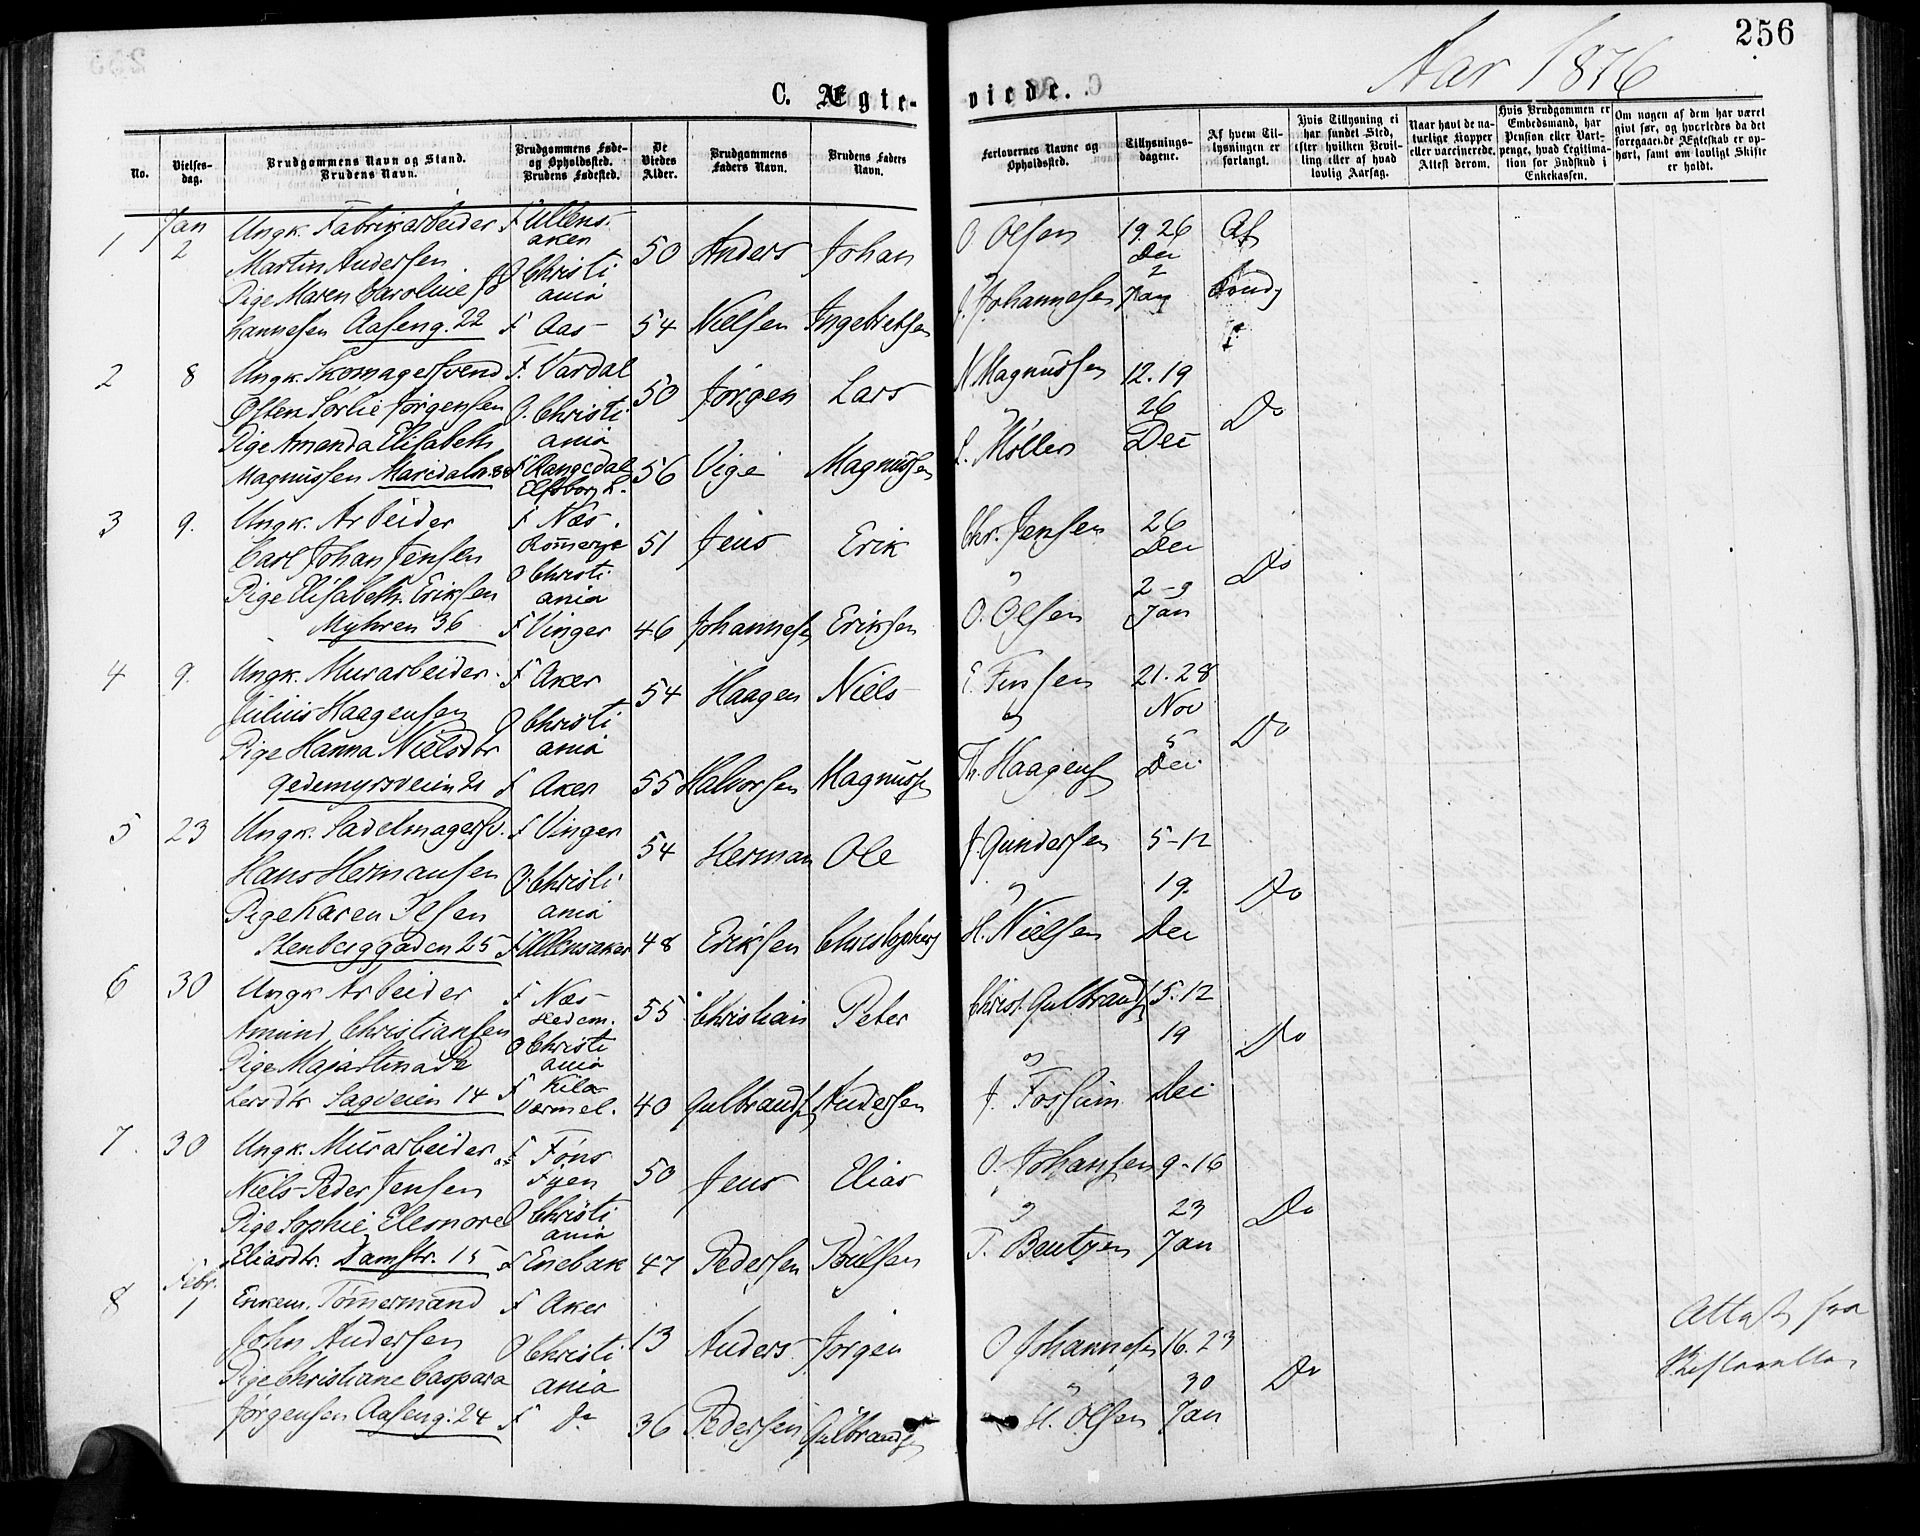 256
Aar 1876
C. Ægte-
viede.
No.
Vielses-
dag.
Brudgommens Navn og Stand.
Brudens Navn.
Brudgommens Føde-
og Opholdssted.
Brudens Fødested.
De
Viedes
Alder.
Brudgommens
Faders Navn.
Brudens Faders
Navn.
Forlovernes Navne og
Opholdssted.
Tillysnings-
dagene.
Af hvem Til-
lysningen er
forlangt.
Hvis Tillysning ei
har fundet Sted,
efter hvilken Bevil-
ling eller af hvad
lovlig Aarsag.
Naar havt de na-
turlige Kopper
eller vaccinerede.
Attest derom.
Hvis Brudgommen er
Embedsmand, har
Pension eller Vart-
penge, hvad Legitima-
tion for Indskud i
Enkekassen.
Om nogen af dem har været
gift før, og hvorledes da det
foregaaende Ægteskab er op-
hørt, samt om lovligt Skifte
er holdt.
1 Jan 2
Ungk. Fabrikarbeider
Martin Andersen
Pige Maren Caroline Jo
hannesen Aaseng. 22
F Ullens-
aker
O Christi
ania
F Aas
50 Anders Johan
54 Nielsen Ingebretsen
O. Olsen 19. 26
Dec
2
J. Johannesen Jan
Af
2 8
Ungk. Skomagersvend
Østen Sørlie Jørgensen
Pige Amanda Elisabeth
Magnussen Maridalsv. 88
F. Vardal
O. Christi
ania
Elfsborg L.
50 Jørgen Lars
56 Magnussen
N Magnussen 12. 19
26
Dec
L. Møller
Do
3 9.
Ungk. Arbeider
Carl Johan Jensen
Pige Elisabeth Eriksen
Myhren 36
F Næs.
Romerge
O Christi
ania
F Vinger
51 Jens Erik
46 Johannesen Eriksen
Chr. Jensen 26
Dec
2-9
O. Olsen Jan
Do
4 9.
Ungk. Murarbeider.
Julius Haagensen
Pige Hanna Nielsdtr
Gedemyrsveien 21
F Aker
O Christi
ania
F Aker
54 Haagen Niels
55 Halvorsen Magnuss
E. Finsen 21. 28
Nov
5
Th. Haagens Dec
Do
5 23
Ungk. Sadelmagersv.
Hans Hermansen
Pige Karen Olsen
Stenberggaden 25
F Vinger
O. Christi
ania
F Ullensaker
54 Herman Ole
48 Eriksen Christophers
J. Gundersen 5-12
19.
H. Nielsen Dec
Do
6 30
Ungk Arbeider
Amund Christiansen
Pige Maja Stina Pe
tersdtr Sagveien 14
F Næs
Hedem.
O Christi
ania
F Kila
Vermel.
55 Christian Peter
40 Gulbrands Andersen
Christ. Gulbrands 5. 12
19
J. Fossum Dec
Do
7. 30
Ungk. Murarbeider
Niels Peder Jensen
Pige Sophie Eleonore
Eliasdtr. Damstr. 15
FFøns
Fyen
O Christi
ania
F Enebak
50 Jens Elias
47 Pedersen Poulsen
O. Johansen 9-16
23
T. Bentzen Jan
Do
8 Febr. 1
Enkem. Tømmermand
John Andersen
Pige Christiane Caspara
Jørgensen Aaseng. 24
F Aker
O Christi
ania
F Do
13 Anders Jørgen
36 Pedersen Gulbrands
O Johannesen 16. 23
30
H. Olsen Jan
Do
Attest fra